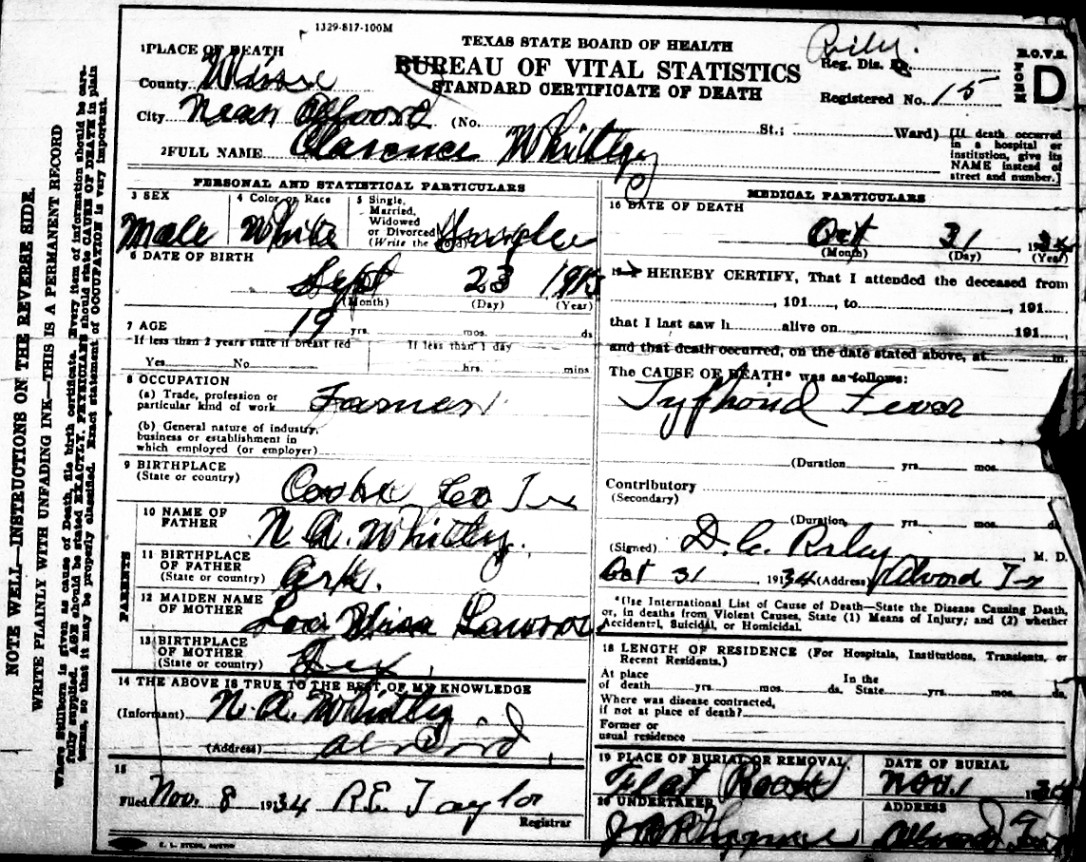 1329-817-100M
TEXAS STATE BOARD OF HEALTH
BUREAU OF VITAL STATISTICS
STANDARD CERTIFICATE OF DEATH
Riley
Reg. Dis.
Registered No. 15
B.O.V.S.
FORM D
1 PLACE OF DEATH
County Wise
City Near Alvord (No. St.; Ward)
[If death occurred in a hospital or institution, give its NAME instead of street and number.]
2 FULL NAME Clarence Whittley
PERSONAL AND STATISTICAL PARTICULARS
3 SEX
Male
4 Color or Race
White
5 Single, Married, Widowed or Divorced
(Write the word)
Single
6 DATE OF BIRTH
Sept 23 1915
(Month) (Day) (Year)
7 AGE
19 yrs. mos. ds
If less than 2 years state if breast fed
Yes No
If less than 1 day
hrs. mins
8 OCCUPATION
(a) Trade, profession or particular kind of work Farmer
(b) General nature of industry, business or establishment in which employed (or employer)
9 BIRTHPLACE
(State or country)
Cooke Co Tex
PARENTS
10 NAME OF FATHER
N. A. Whittley
11 BIRTHPLACE OF FATHER
(State or country)
Ark.
12 MAIDEN NAME OF MOTHER
13 BIRTHPLACE OF MOTHER
(State or country)
Tex.
14 THE ABOVE IS TRUE TO THE BEST OF MY KNOWLEDGE
(Informant) N. A. Whittley
(Address) Alvord
15
Filed Nov. 8 1934 R.E. Taylor
Registrar
MEDICAL PARTICULARS
16 DATE OF DEATH
Oct 31 1934
(Month) (Day) (Year)
17 I HEREBY CERTIFY, That I attended the deceased from
, 191 , to , 191
that I last saw h alive on 191
and that death occurred, on the date stated above, at m.
The CAUSE OF DEATH* was as follows:
Tyfhoid Fever
(Duration yrs. mos.
Contributory
(Secondary)
(Duration, yrs. mos. ds
(Signed) D. C. Riley, M. D.
Oct 31, 1934 (Address) Alvord Tex
*(Use International List of Cause of Death—State the Disease Causing Death, or, in deaths from Violent Causes, State (1) Means of Injury; and (2) whether Accidental, Suicidal, or Homicidal.
18 LENGTH OF RESIDENCE (For Hospitals, Institutions, Transients, or Recent Residents.)
At place of death yrs. mos. ds. In the State yrs. mos. ds.
Where was disease contracted, if not at place of death?
Former or usual residence
19 PLACE OF BURIAL OR REMOVAL
Flat Rock
DATE OF BURIAL
Nov. 1 1934
20 UNDERTAKER
ADDRESS
Alvord Tex
NOTE WELL—INSTRUCTIONS ON THE REVERSE SIDE.
WRITE PLAINLY WITH UNFADING INK—THIS IS A PERMANENT RECORD
Where Stillborn is given as cause of Death, file birth certificate. Every item of information should be carefully supplied. AGE should be stated EXACTLY. PHYSICIANS should state CAUSE OF DEATH in plain terms, so that it may be properly classified. Exact statement of OCCUPATION is very important.